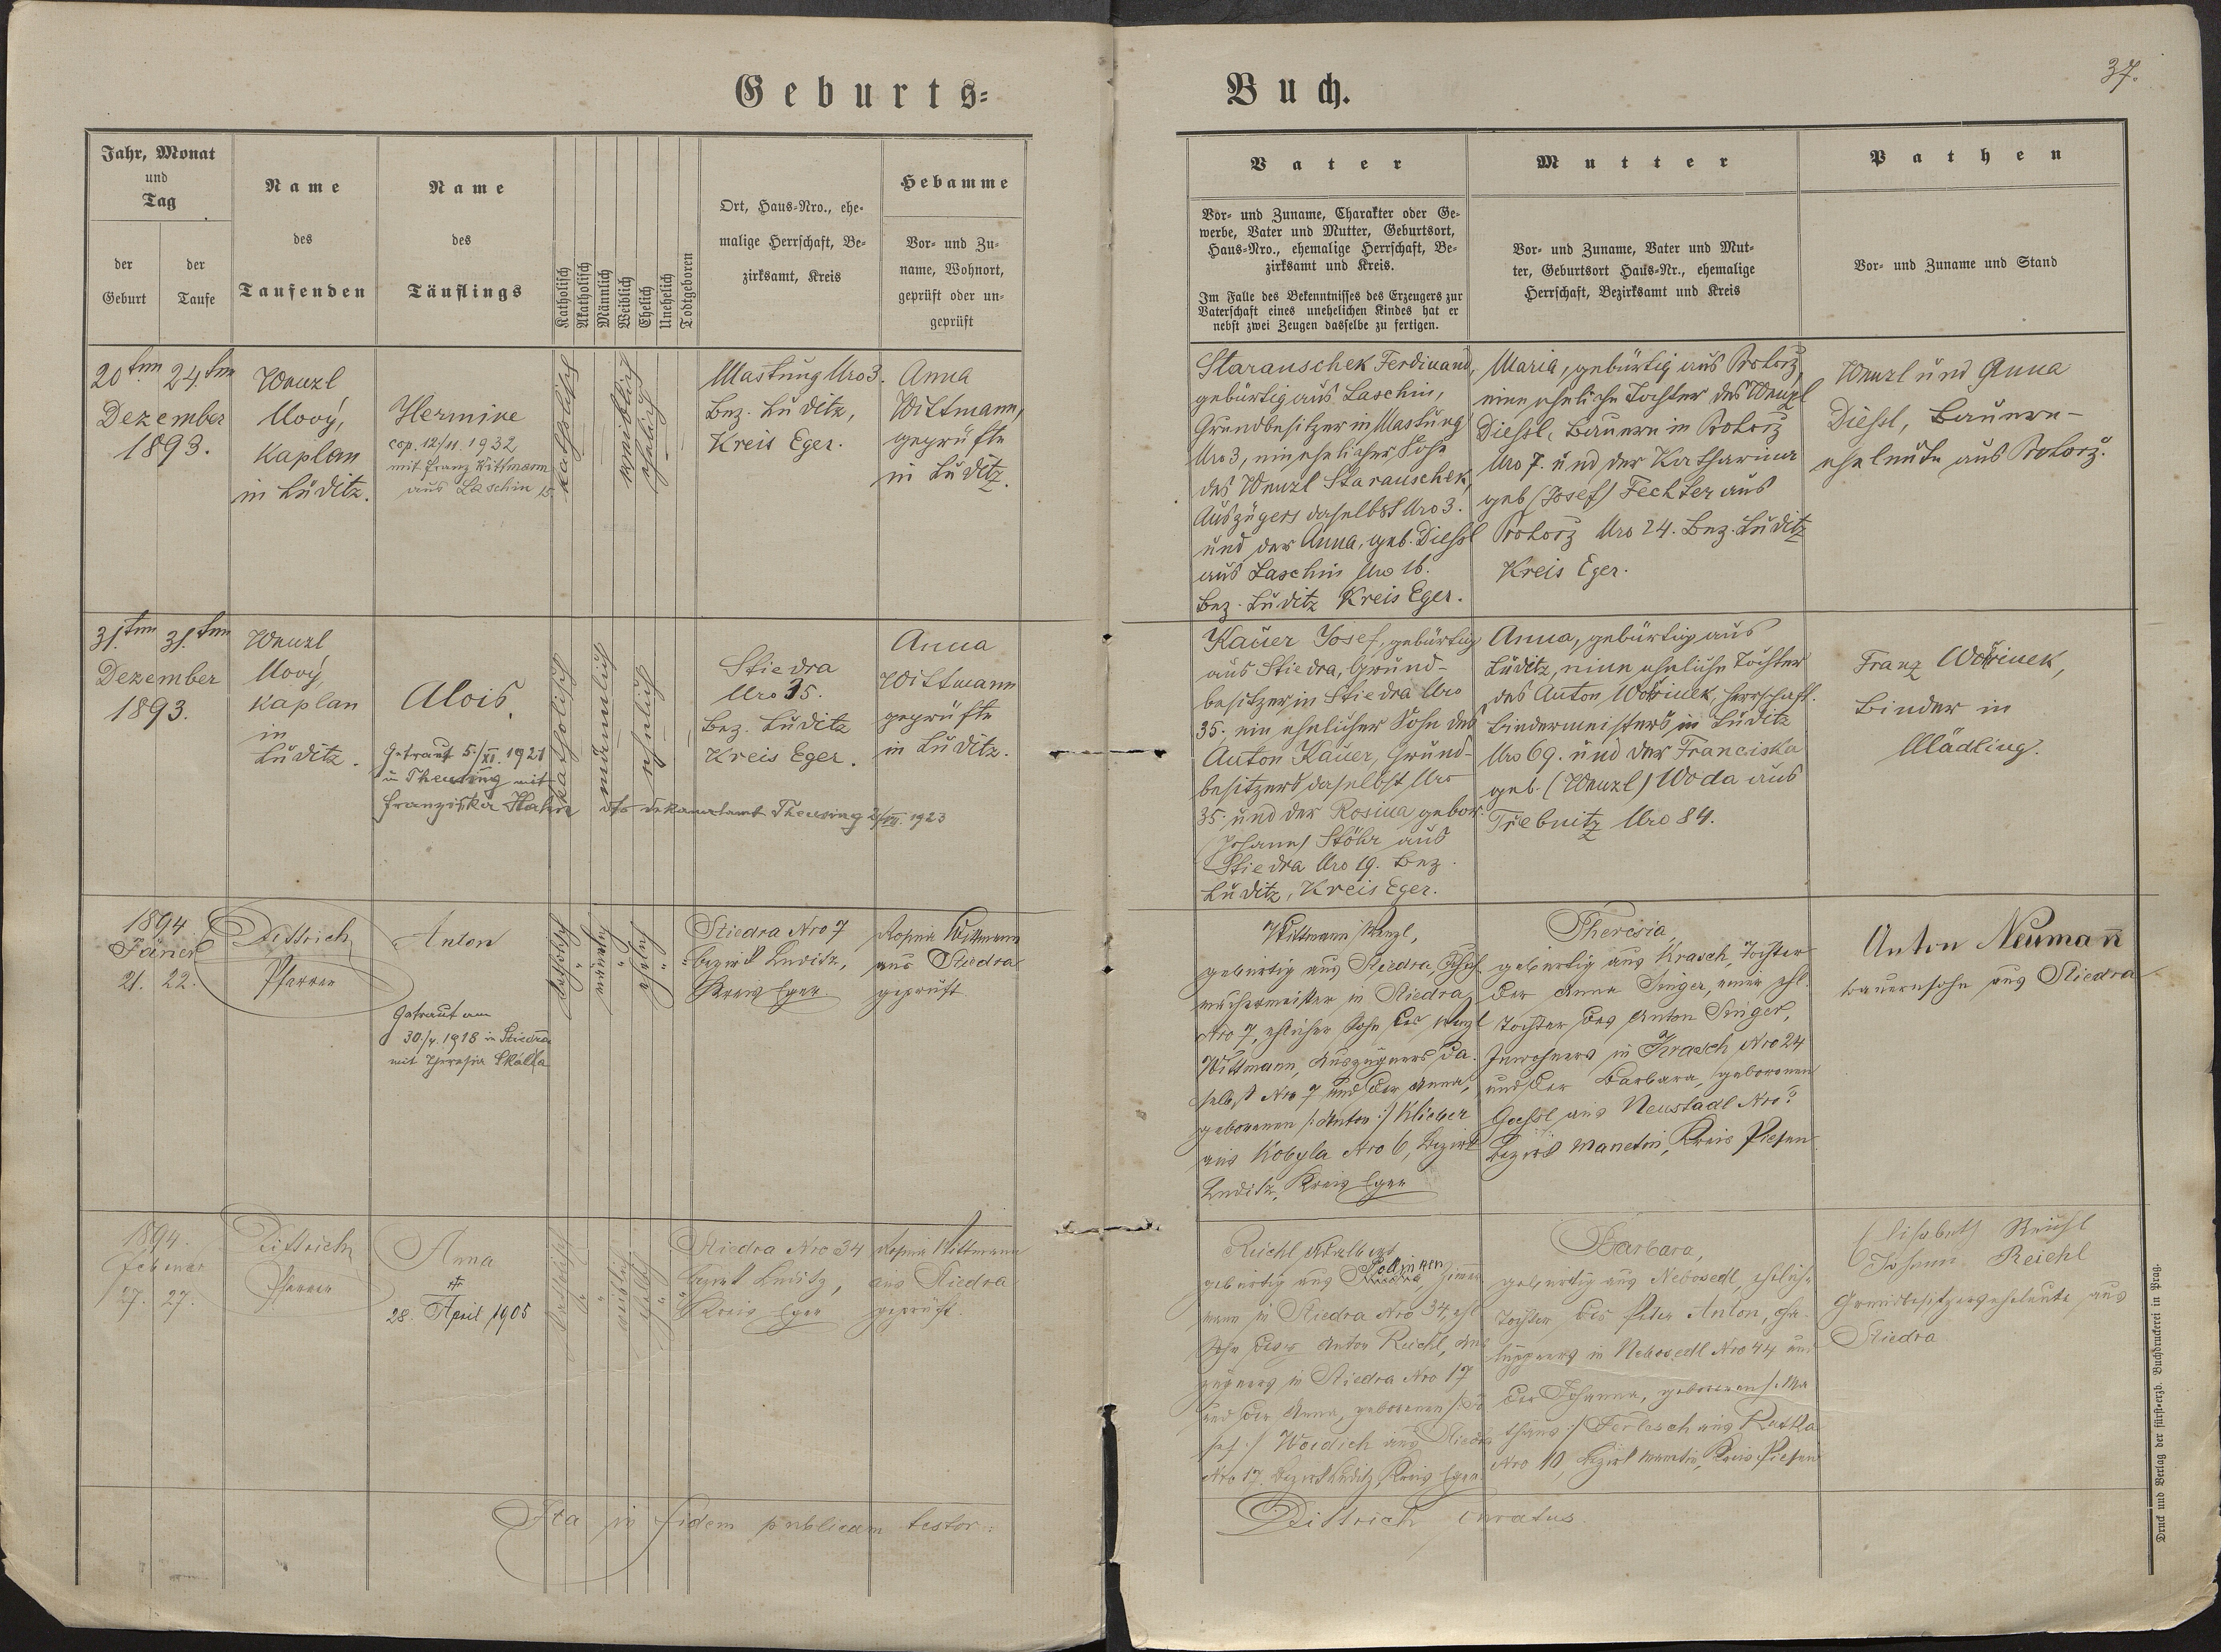 Geburts=
Buch.
37.
Jahr, Monat
und
Tag
der
Geburt
der
Taufe
Name
des
Taufenden
Name
des
Täuflings
Katholisch
Akatholisch
Männlich
Weiblich
Ehelich
Unehelich
Todtgeboren
Ort, Haus-Nro., ehe-
malige Herrschaft, Be-
zirksamt, Kreis
Hebamme
Vor- und Zu-
name, Wohnort,
geprüft oder un-
geprüft
Vater
Vor- und Zuname, Charakter oder Ge-
werbe, Vater und Mutter, Geburtsort,
Haus-Nro., ehemalige Herrschaft, Be-
zirksamt und Kreis.
Im Falle des Bekenntnisses des Erzeugers zur
Vaterschaft eines unehelichen Kindes hat er
nebst zwei Zeugen dasselbe zu fertigen.
Mutter
Vor- und Zuname, Vater und Mut-
ter, Geburtsort Haus-Nr., ehemalige
Herrschaft, Bezirksamt und Kreis
Pathen
Vor- und Zuname und Stand
20ten 24ten
Dezember
1893.
Wenzl
Mooý,
Kaplan
in Luditz.
Hermine
cop. 12/11. 1932
mit Franz Wittmann
aus Laschin 15.
katholisch
weiblich
ehelich
Mastung Nro 3.
Bez. Luditz,
Kreis Eger.
Anna
Wittmann,
geprüfte
in Luditz.
Starauschek Ferdinand,
gebürtig aus Laschin,
Grundbesitzer in Mastung
Nro 3, ein ehelicher Sohn
des Wenzl Starauschek,
Auszügers daselbst Nro 3.
und der Anna, geb. Diessl
aus Laschin Nro 16.
Bez. Luditz Kreis Eger.
Maria, gebürtig aus Protorz,
eine eheliche Tochter des Wenzl
Diessl, Bauern in Protorz
Nro 7. und der Katharina
geb (Josef) Fechter aus
Protorz Nro 24. Bez. Luditz
Kreis Eger.
Wenzl und Anna
Diessl, Bauern-
eheleute aus Protorz.
31.ten 31.ten
Dezember
1893.
Wenzl
Mooý,
Kaplan
in
Luditz.
Alois.
Getraut 5./XI. 1921
in Theusing mit
Franziska Hahn dto Dekanalamt Theusing 2/VII. 1923
katholisch
männlich
ehelich
Stiedra
Nro 35.
Bez. Luditz
Kreis Eger.
Anna
Wittmann
geprüfte
in Luditz.
Kauer Josef, gebürtig
aus Stiedra, Grund-
besitzer in Stiedra Nro
35. ein ehelicher Sohn des
Anton Kauer, Grund-
besitzers daselbst Nro
35. und der Rosina gebor.
(Johann) Stöhr aus
Stiedra Nro 19. Bez.
Luditz, Kreis Eger.
Anna, gebürtig aus
Luditz, eine eheliche Tochter
des Anton Wořinek, herrschaft.
Bindermeisters in Luditz
Nro 69. und der Franciska
geb. (Wenzl) Woda aus
Trebnitz Nro 84.
Franz Wořinek,
Binder in
Mödling.
1894
Jäner
21. 22.
Dittrich
Pfarrer
Anton
Getraut am
30./4. 1918 in Stiedra
mit Theresia Skalla
katholisch
ehelich
Stiedra Nro 7
Bezirk Luditz,
Kreis Eger
Rosina Wittmann
aus Stiedra
geprüft
Wittmann Wenzl,
gebürtig aus Stiedra,
in Stiedra
Nro 7, ehelicher Sohn des Wenzl
Wittmann, Auszügners da-
selbst Nro 7 und der Anna,
geborenen /: Anton :/ Klieber
aus Kobyla Nro 6, Bezirk
Luditz, Kreis Eger
Theresia,
gebürtig aus Krasch, Tochter
der Anna Singer, einer ehl.
Tochter des Anton Singer,
Inwohners in Krasch Nro 24
und der Barbara, geborenen
aus Neustadl Nro ?
Bezirk Manetin, Kreis Pilsen
Anton Neumañ
Bauernsohn aus Stiedra
1894.
Februar
27. 27.
Dittrich
Pfarrer
Anna
†
28. April 1905
katholisch
weiblich
ehelich
Stiedra Nro 34
Bezirk Luditz,
Kreis Eger
Rosina Wittmann
aus Stiedra
geprüft.
Reichl Adalbert
gebürtig aus Zimmer
mann in Stiedra Nro 34, ehl
Sohn des Anton Reichl, Aus
zügners in Stiedra Nro 17
und der Anna, geborenen /: Jo
sef :/ Woidich aus Stiedra
Nro 17, Bezirk Luditz, Kreis Eger
Barbara,
gebürtig aus Nebosedl, eheliche
Tochter des Peter Anton, Cha
luppners in Nebosedl Nro 44 und
der Johanna, geborenen /: Ma
thäus :/ Ferlesch aus Ratka
Nro 10, Bezirk Manetin, Kreis Pilsen
Elisabeth Reichl
Johann Reichl
Grundbesitzerseheleute aus
Stiedra
Ita in fidem publicam testor:
Dittrich curatus.
Druck und Verlag der fürst-erzb. Buchdruckerei in Prag.